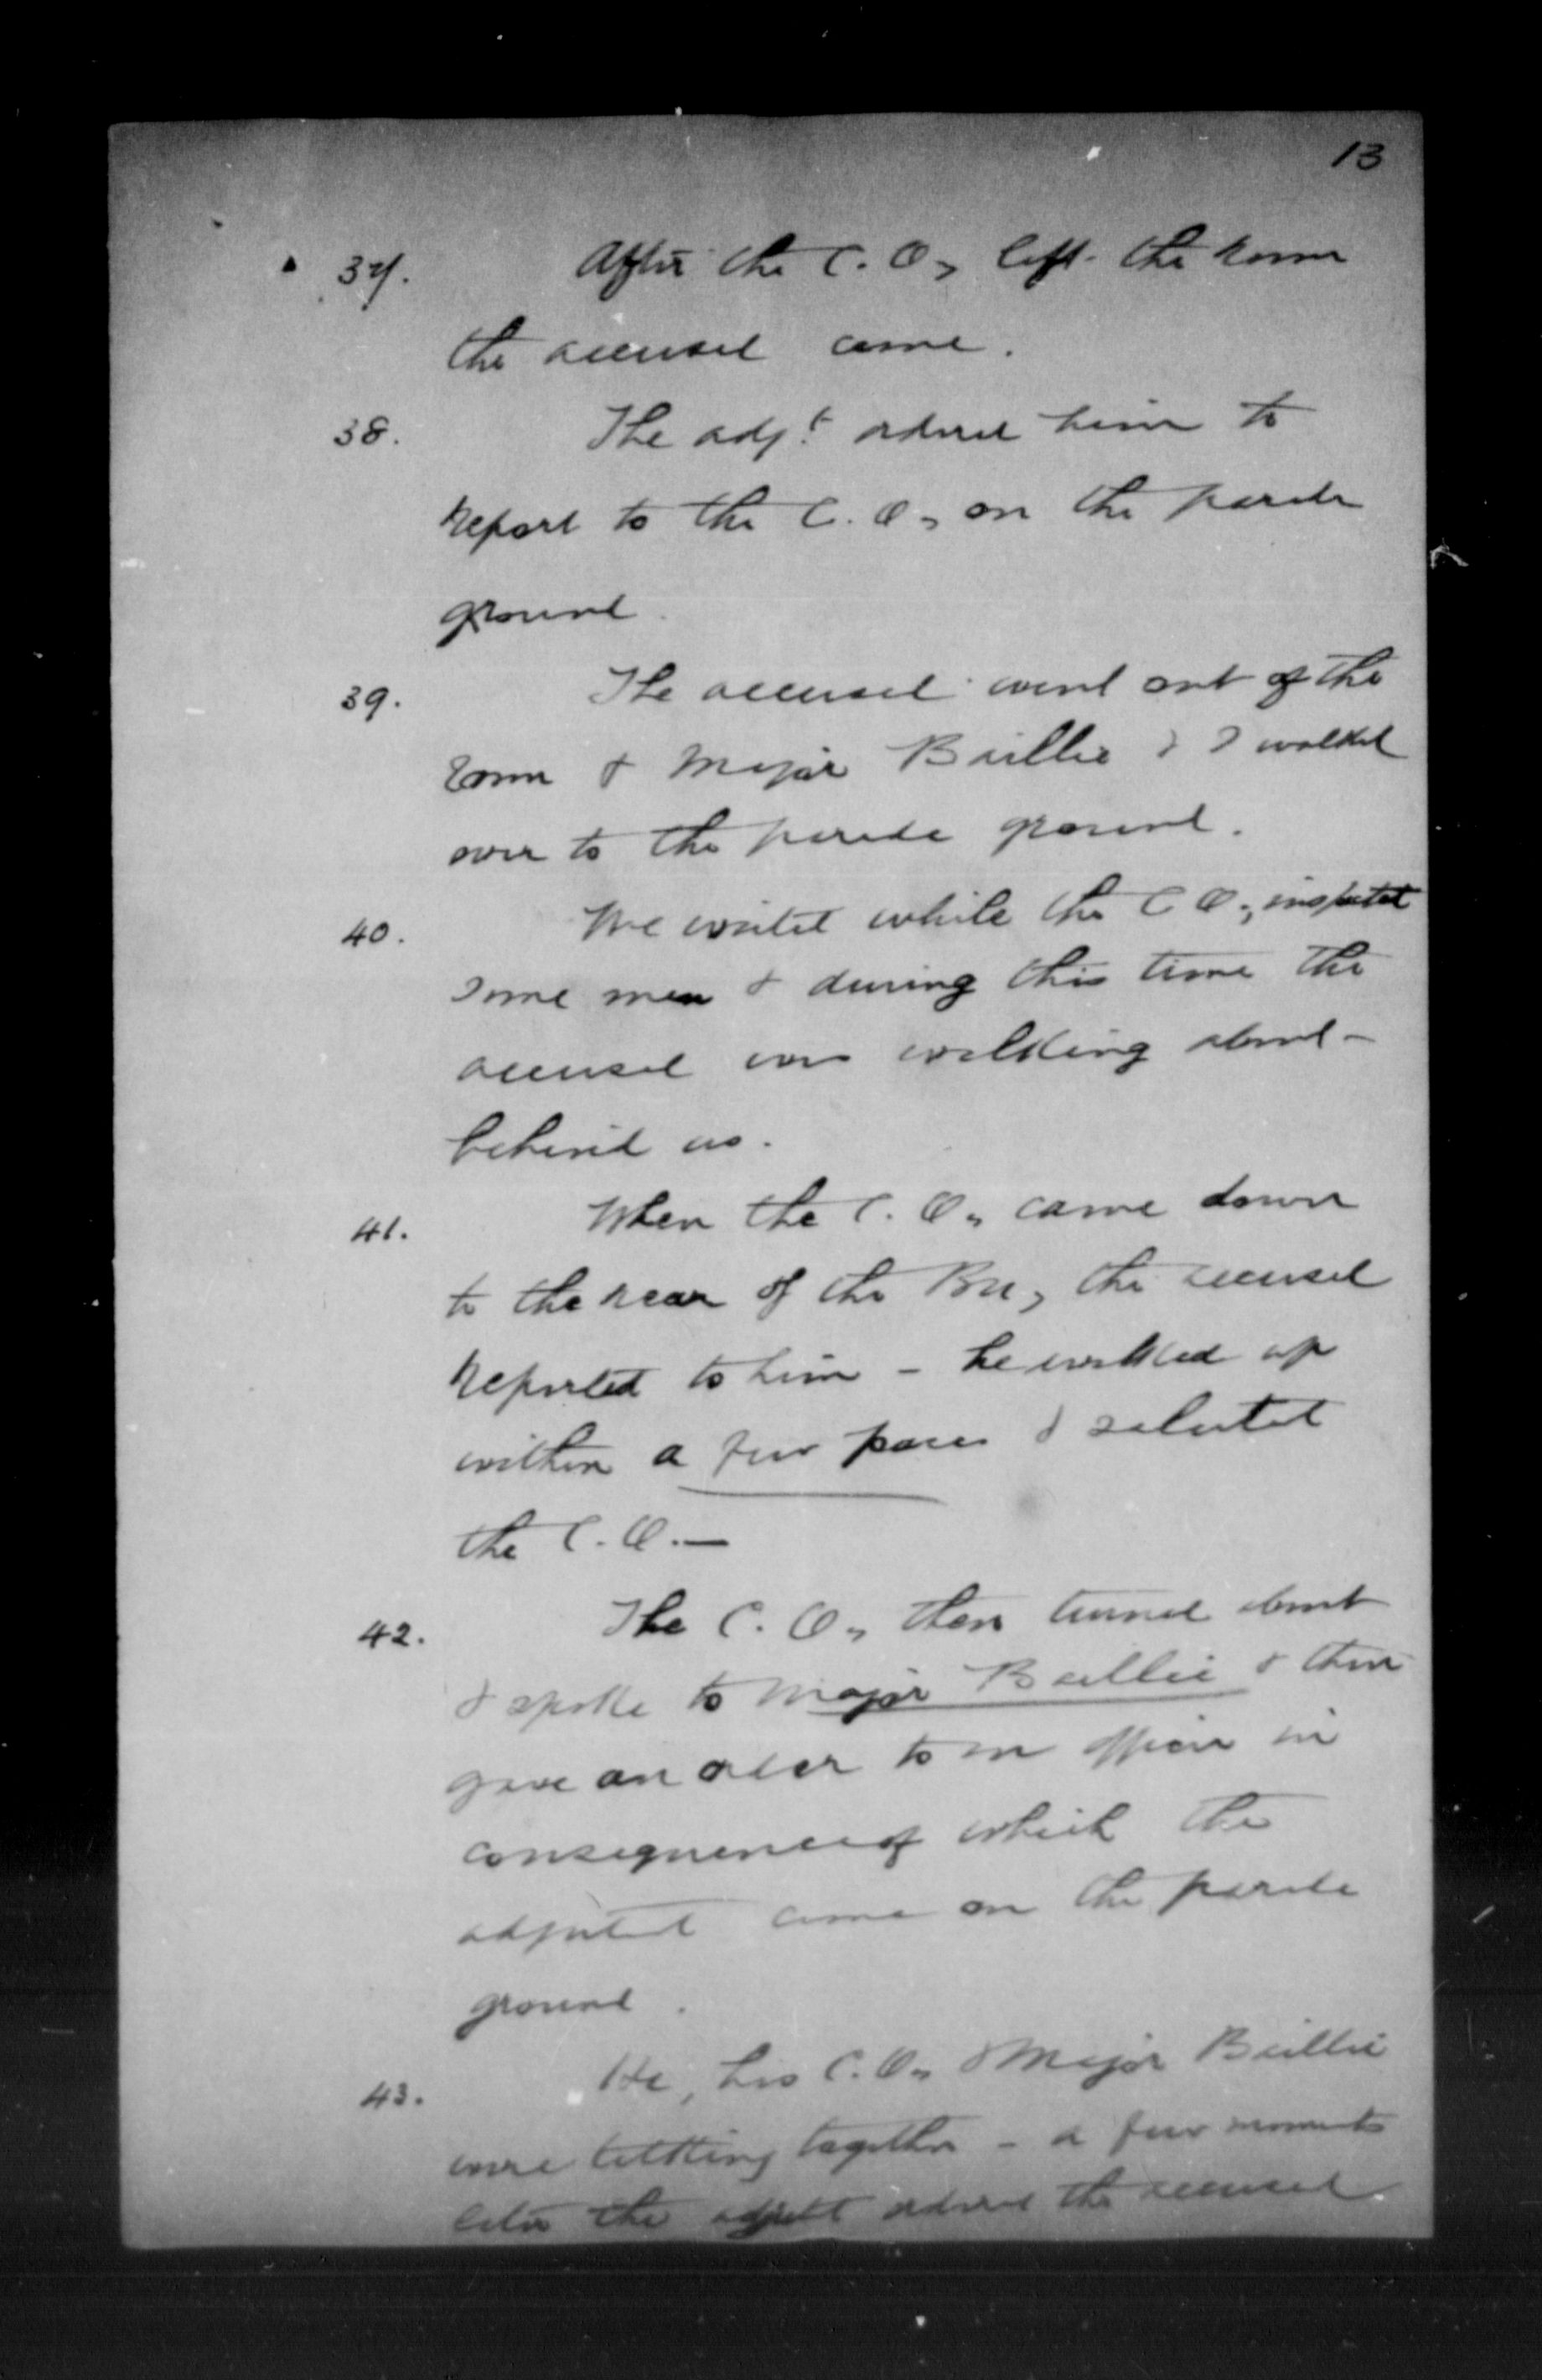 13
37. After the C.O., left the room
the accused came.
38. The adjt ordered him to
report to the C.O., on the parade
ground.
39. The accused went out of the
room & Major Baillie & I walked
over to the parade ground.
40. We waited while the C O., inspected
some men & during this time the
accused was walking about
behind us.
41. When the C.O., came down
to the rear of the Bn, the accused
reported to him - he walked up
within a few paces & saluted
the C.O.—
42. The C.O., then turned about
& spoke to Major Baillie & then
gave an order to an officer in
consequence of which the
adjutant came on the parade
ground.
43. He, his C.O., & Major Baillie
were talking together - a few moments
later the adjutt ordered the accused